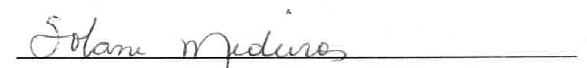 Solani Medeiros